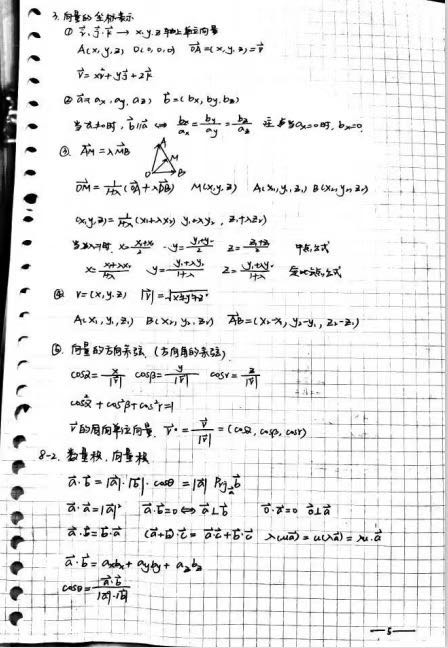 3. 向量的坐标表示
① i⃗, j⃗, k⃗ → x, y, z 轴上单位向量
A(x, y, z) O(0, 0, 0) OA⃗ = (x, y, z) = v⃗
v⃗ = xi⃗ + yj⃗ + zk⃗
② a⃗ = (ax, ay, az) b⃗ = (bx, by, bz)
当 a⃗≠0时, b⃗∥a⃗ ⟺ bx/ax = by/ay = bz/az 注: 当ax=0时, bx=0.
③ AM⃗ = λMB⃗
A
M
O B
OM⃗ = 1/(1+λ) (OA⃗ + λOB⃗) M(x, y, z) A(x₁, y₁, z₁) B(x₂, y₂, z₂)
(x, y, z) = 1/(1+λ) (x₁+λx₂, y₁+λy₂, z₁+λz₂)
当λ=1时 x = (x₁+x₂)/2 y = (y₁+y₂)/2 z = (z₁+z₂)/2 中点公式
x = (x₁+λx₂)/(1+λ) y = (y₁+λy₂)/(1+λ) z = (z₁+λz₂)/(1+λ) 定比分点公式
④ v = (x, y, z) |v⃗| = √(x²+y²+z²)
A(x₁, y₁, z₁) B(x₂, y₂, z₂) AB⃗ = (x₂-x₁, y₂-y₁, z₂-z₁)
⑤. 向量的方向余弦. (方向角的余弦)
cosα = x/|v⃗| cosβ = y/|v⃗| cosγ = z/|v⃗|
cos²α + cos²β + cos²γ = 1
v⃗的同向单位向量. v⃗° = v⃗/|v⃗| = (cosα, cosβ, cosγ)
8-2. 数量积, 向量积
a⃗·b⃗ = |a⃗|·|b⃗|·cosθ = |a⃗| Prj_a⃗ b⃗
a⃗·a⃗ = |a⃗|² a⃗·b⃗ = 0 ⟺ a⃗⊥b⃗ 0⃗·a⃗ = 0 0⃗⊥a⃗
a⃗·b⃗ = b⃗·a⃗ (a⃗+b⃗)·c⃗ = a⃗·c⃗ + b⃗·c⃗ λ(ua⃗) = u(λa⃗) = λu·a⃗
a⃗·b⃗ = axbx + ayby + azbz
cosθ = a⃗·b⃗/(|a⃗|·|b⃗|)
5